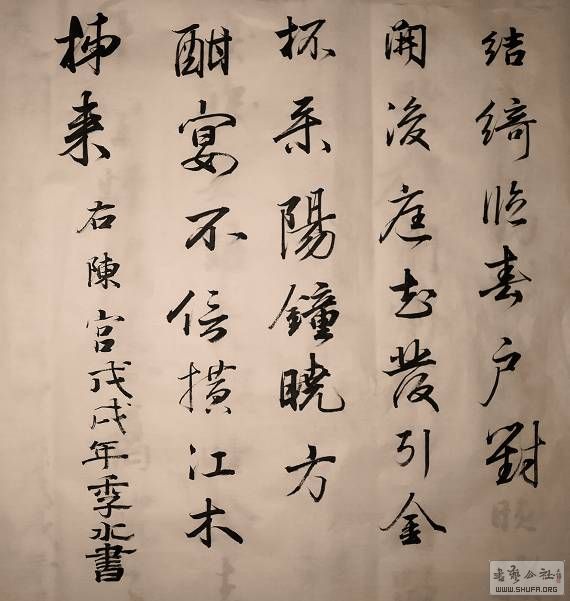 結綺臨春户對
開後庭花發引金
杯景陽鐘曉方
酣宴不信橫江木
柿来 右陳宮戊戌年季水書
書藝公社
WWW.SHUFA.ORG